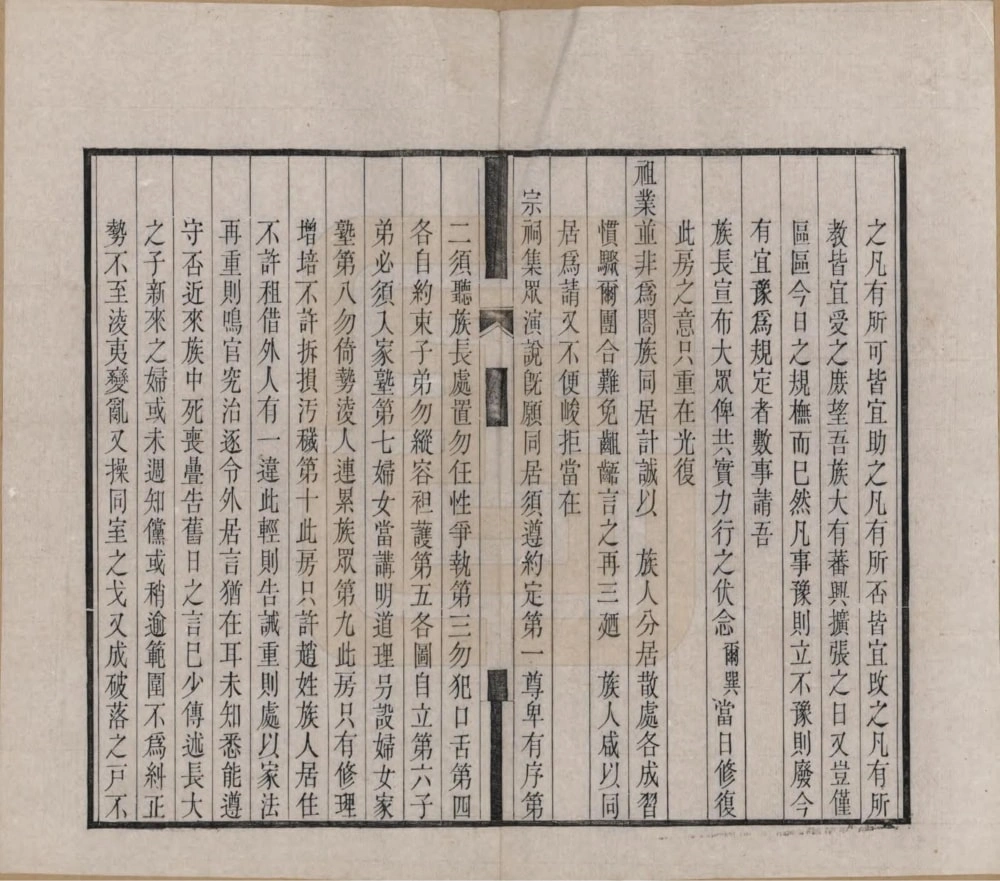 之凡有所可皆宜助之凡有所否皆宜攻之凡有所
教皆宜受之庶望吾族大有蕃興擴張之日又豈僅
區區今日之規橅而已然凡事豫則立不豫則廢今
有宜豫爲規定者數事請吾
族長宣布大眾俾共實力行之伏念爾巽當日修復
此房之意只重在光復
祖業並非爲闔族同居計誠以　族人分居散處各成習
慣驟爾團合難免齟齬言之再三廼　族人咸以同
居爲請又不便峻拒當在
宗祠集眾演說旣願同居須遵約定第一尊卑有序第
二須聽族長處置勿任性爭執第三勿犯口舌第四
各自約束子弟勿縱容袒護第五各圖自立第六子
弟必須入家塾第七婦女當講明道理另設婦女家
塾第八勿倚勢淩人連累族眾第九此房只有修理
增培不許拆損汚穢第十此房只許趙姓族人居住
不許租借外人有一違此輕則告誡重則處以家法
再重則鳴官究治逐令外居言猶在耳未知悉能遵
守否近來族中死喪疊告舊日之言已少傳述長大
之子新來之婦或未週知儻或稍逾範圍不爲糾正
勢不至淩夷變亂又操同室之戈又成破落之戶不